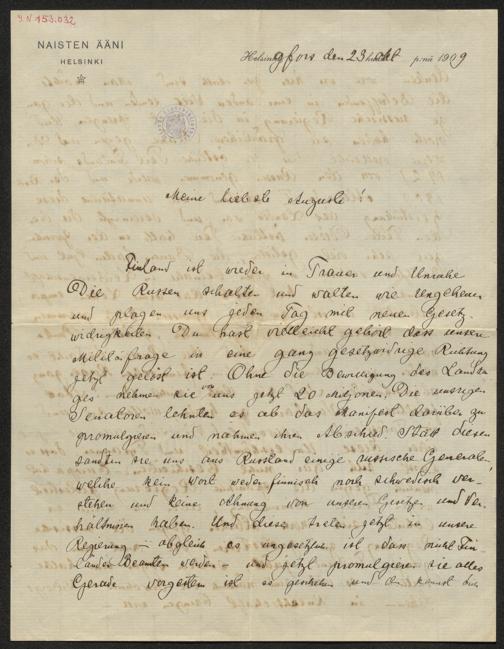 I.N 153.032
NAISTEN ÄÄNI
HELSINKI
Helsingfors den 23 okt p:nä 1909
Meine liebste Auguste!
Finland ist wieder in Trauer und Unruhe
Die Russen schalten und walten wie Ungeheuer
und plagen uns jeden Tag mit neuen Gesetz-
widrigkeiten. Du hast vielleicht gehört dass unsere
Militärfrage in eine ganz gesetzwidrige Richtung
jetzt gelöst ist. Ohne die Bewilligung des Landta-
ges nehmen sie von uns jetzt 20 miljonen. Die unsrigen
Senatoren lehnten es ab das Manifest darüber zu
promulgieren und nahmen ihren Abschied. Statt diesen
sandten sie uns aus Russland einige russische Generale,
welche kein Wort weder finnisch noch schwedisch ver-
stehen und keine Ahnung von unseren Gesetzen und Ver-
hältnissen haben. Und diese treten jetzt in unsere
Regierung – obgleich es ungesetzlich ist dass nicht Fin-
länder Beamten werden – und jetzt promulgieren sie alles
Gerade vorgestern ist es geschehen und Du kannst